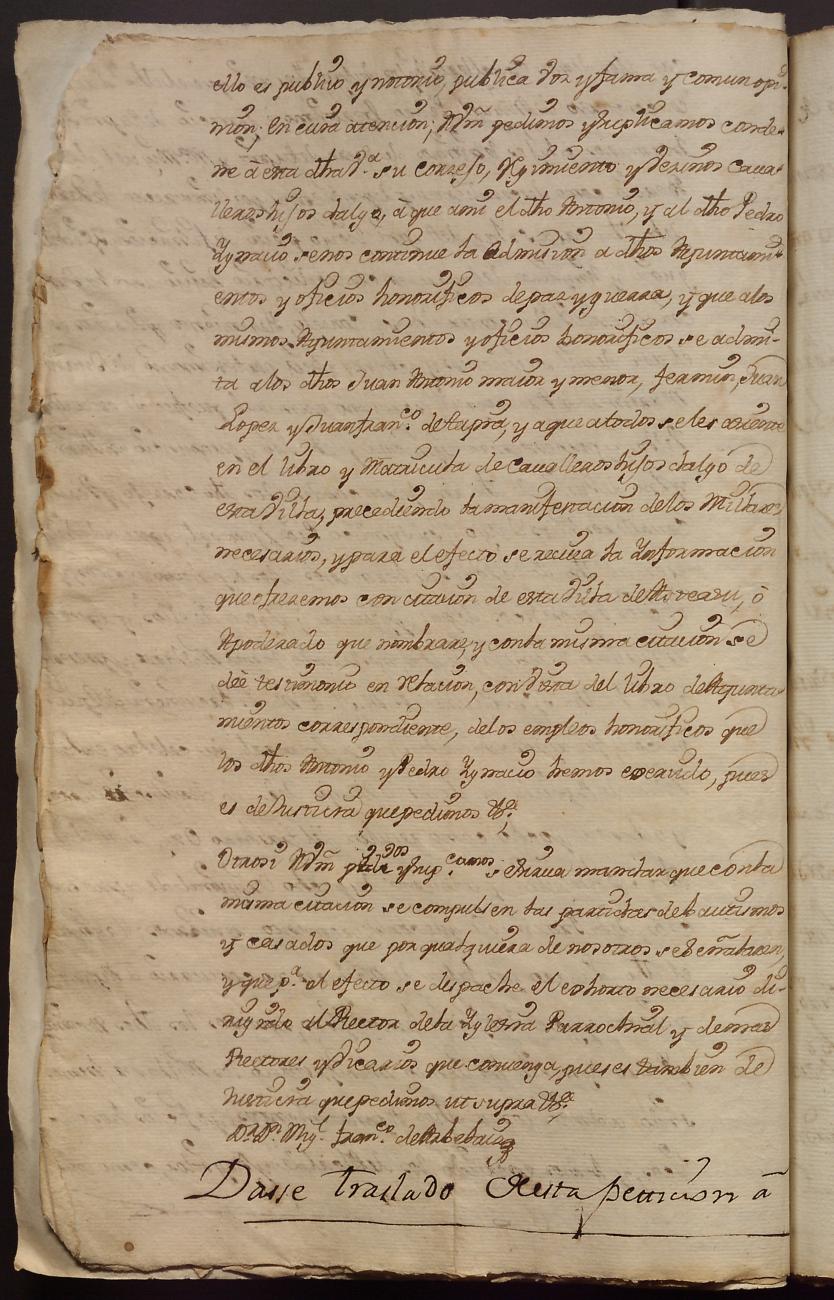 ello es publico y notorio, publica voz y fama y comun opi-
nion: En cuia atencion; A Vm pedimos y suplicamos conde-
ne à esta dha V.ª su conzejo, Regimiento y Vezinos Cava-
lleros hijos dalgo, à que a mi el dho Antonio, y al dho Pedro
Ygnacio se nos continue la Admision a dhos Ayuntami-
entos y oficios honorificos de paz y guerra, y que a los
mismos Ayuntamientos y oficios honorificos se admi-
ta a los dhos Juan Antonio maior y menor, fermin, Juan
Lopez y Juan fran.co de Lapra, y a que a todos se les asiente
en el libro y Matricula de Cavalleros hijos dalgo de
esta Villa, precediendo la manifestacion de los Millares
necesarios, y para el efecto se reciva la Informacion
que ofrezemos con citacion de esta Villa de, ò
Apoderado que nombrare, y con la misma citacion se
deè testimonio en Relacion, con vista del libro de Ayunta-
mientos correspondiente, de los empleos honorificos que
los dhos Antonio y Pedro Ygnacio hemos exercido, pues
es de Justicia que pedimos &.ª
Otrosi A Vm pedimos y sup.camos se sirva mandar que con la
misma citacion se compulsen las partidas de bautismos
y casados que por qualquiera de nosotros se señalaren,
y que p.ª el efecto se despache el exhorto necesario di-
rigido al Rector de la Yglesia Parrochial y demas
Rectores y Vicarios que convenga, pues es tambien de
Justicia que pedimos ut supra &.ª
D.r D.n Mig.l fran.co de
Dasse traslado de esta peticion à